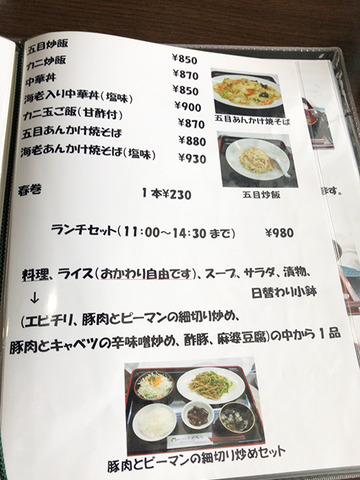 五目炒飯 ¥850
カニ炒飯 ¥870
中華丼 ¥850
海老入り中華丼(塩味) ¥900
カニ玉ご飯(甘酢付) ¥870
五目あんかけ焼そば ¥880
海老あんかけ焼そば(塩味) ¥930
五目あんかけ焼そば
五目炒飯
春巻 1本¥230
ランチセット(11:00~14:30まで) ¥980
料理、ライス(おかわり自由です)、スープ、サラダ、漬物、
↓ 日替わり小鉢
(エビチリ、豚肉とピーマンの細切り炒め、
豚肉とキャベツの辛味噌炒め、酢豚、麻婆豆腐)の中から1品
豚肉とピーマンの細切り炒めセット
ます。